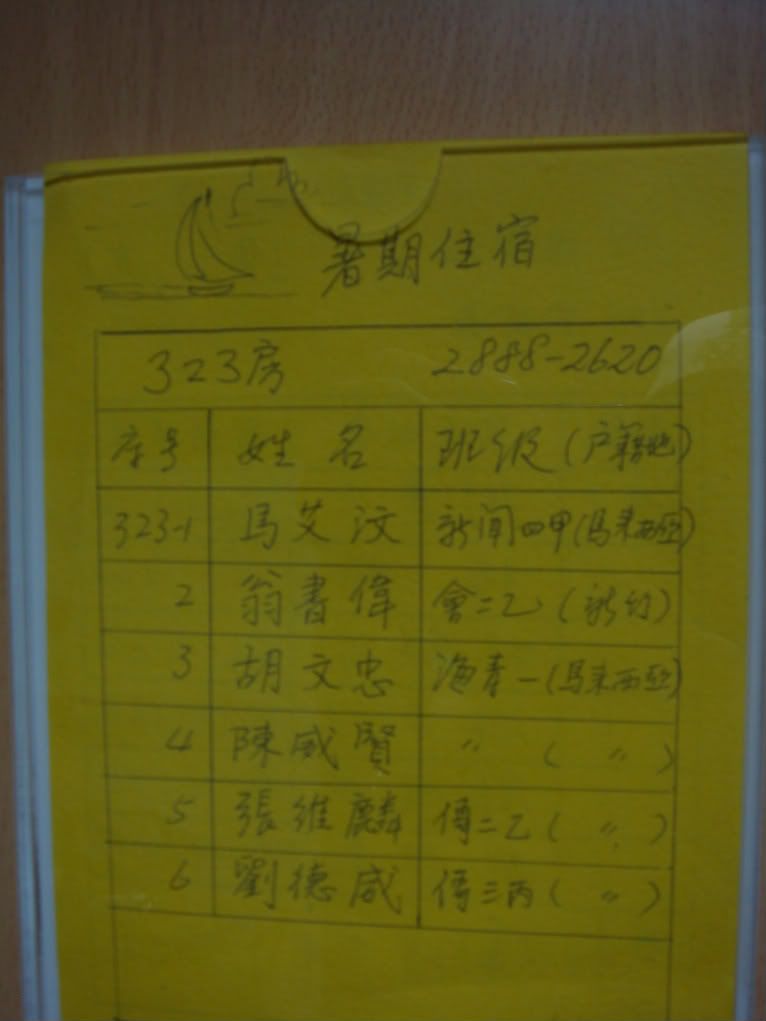 暑期住宿
323房 2888-2620
序号 姓名 班级(户籍地)
323-1 馬艾汶 新闻四甲(馬来西亞)
2 翁書偉 會二乙(新竹)
3 胡文忠 海青一(馬来西亞)
4 陳威賢 〃 (〃)
5 張維麟 傳二乙(〃)
6 劉德威 傳三丙(〃)